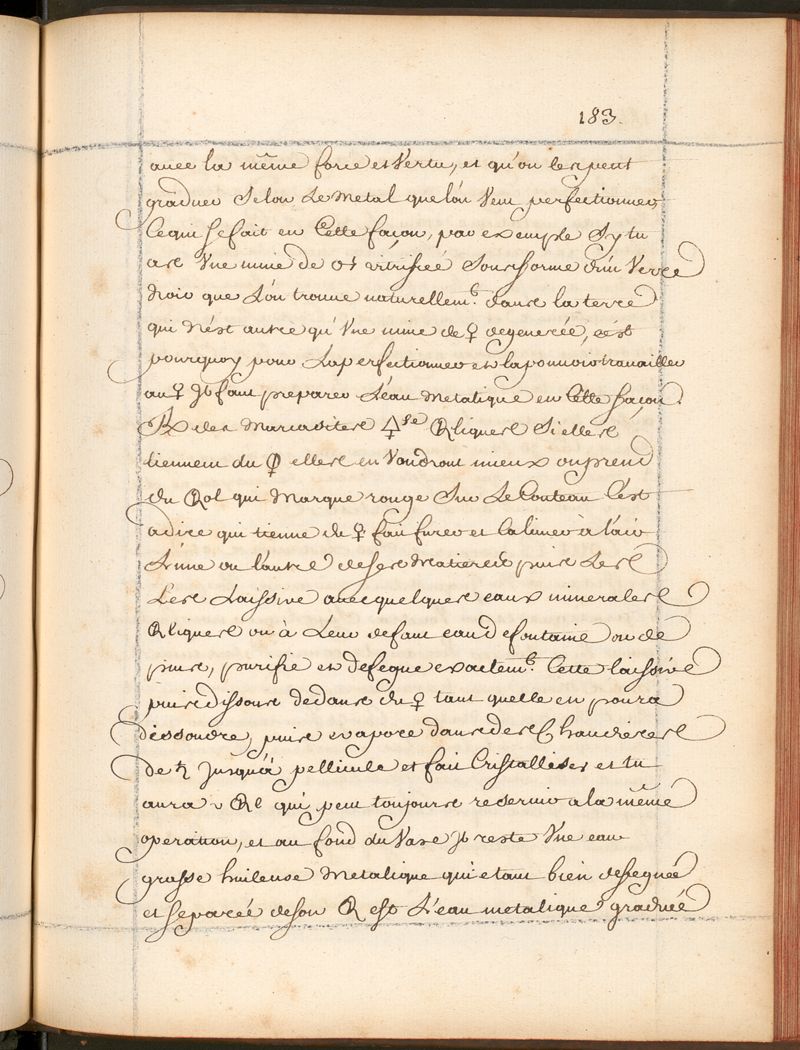 183.
avec la même force et Vertu, et qu'on les peut
graduer Selon Le Metal que lón Veut perfectionner,
Ce qui se fait en Cette façon, par exemple Sy tu
as Vne mine de ♂ vitrifiée Sous forme d'un Verre
Noir que L'on trouue naturellemt. dans la terre
qui n'ést autre qu'Vne mine de ♀ degenerée, c'est
pourquoy pour La perfectionner et la pouuoir trauailler
au ♀ Jl faut preparer L'éau Metalique en Cette façon.
des Marcasites si elles
tiennent du elles en Vaudront mieux ou prend
du qui Marque rouge Sur Le Couteau C'ést
adire qui tienne de ♀ fait fuser et Calciner à l'air
L'une ou l'autre de ses Matieres puis Les
Les Laissive auec quelques eaux minerales
ou à Leur defaut eau de fontaine ou de
pluie, purifie et defeque exactemt. Cette laissive
puis dissous dedans du ♀ tant quelle en poura
dissoudre, puis evapore dans des Chaudieres
de ♄ Jusqu'à pellicule et fait Cristalliser et tu
aura qui peut toujours reservir a la même
operation, et au fond du Vase Jl reste Vne eau
grasse huileuse Metalique qui etant bien defequée
et separée de son est L'eau metalique graduée